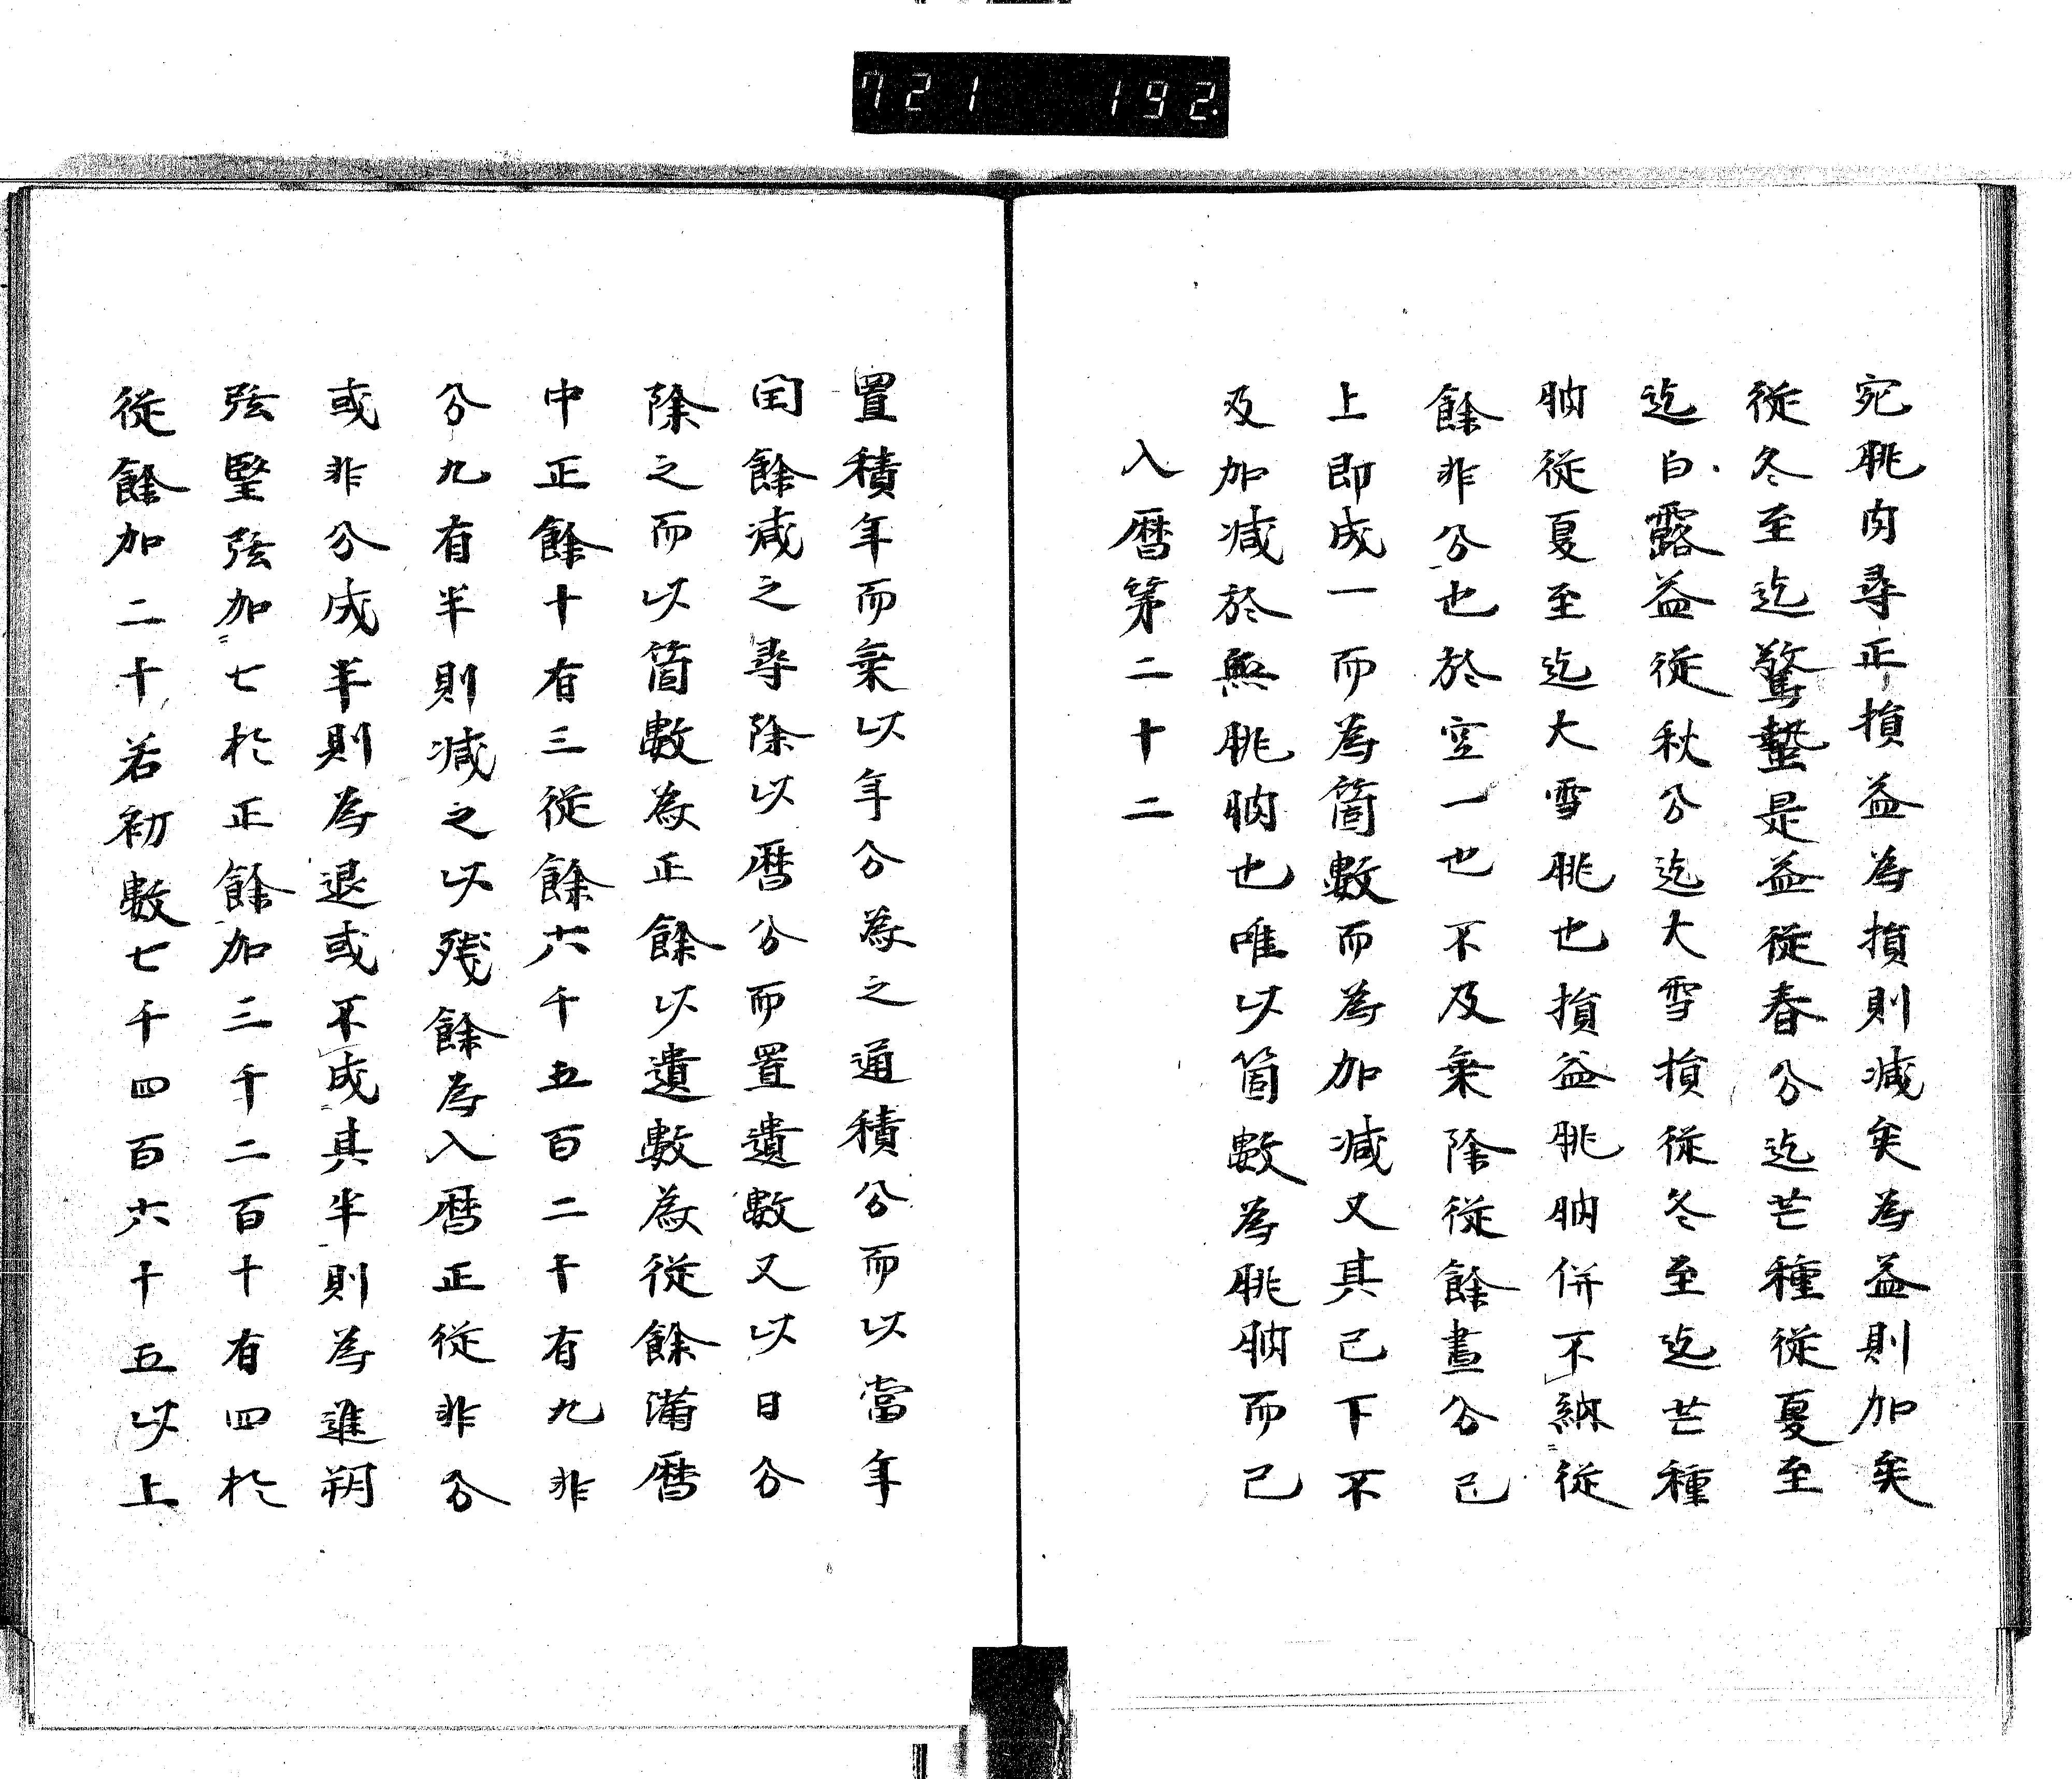 721 192
宛朓肉尋正損益為損則減矣為益則加矣
從冬至迄驚蟄是益從春分迄芒種從夏至
迄白露益從秋分迄大雪損從冬至迄芒種
朒從夏至迄大雪朓也損益朓朒併不納從
餘非分也於空一也不及乗除從餘晝分已
上即成一而為箇數而為加減又其己下不
及加減於無朓朒也唯以箇數為朓朒而已
入暦第二十二
置積年而乗以年分為之通積分而以當年
閏餘減之尋除以暦分而置遺數又以日分
除之而以箇數為正餘以遺數為從餘滿暦
中正餘十有三從餘六千五百二十有九非
分九有半則減之以殘餘為入暦正從非分
或非分成半則為退或不成其半則為進朔
弦望弦加七於正餘加三千二百十有四於
從餘加二十若初數七千四百六十五以上